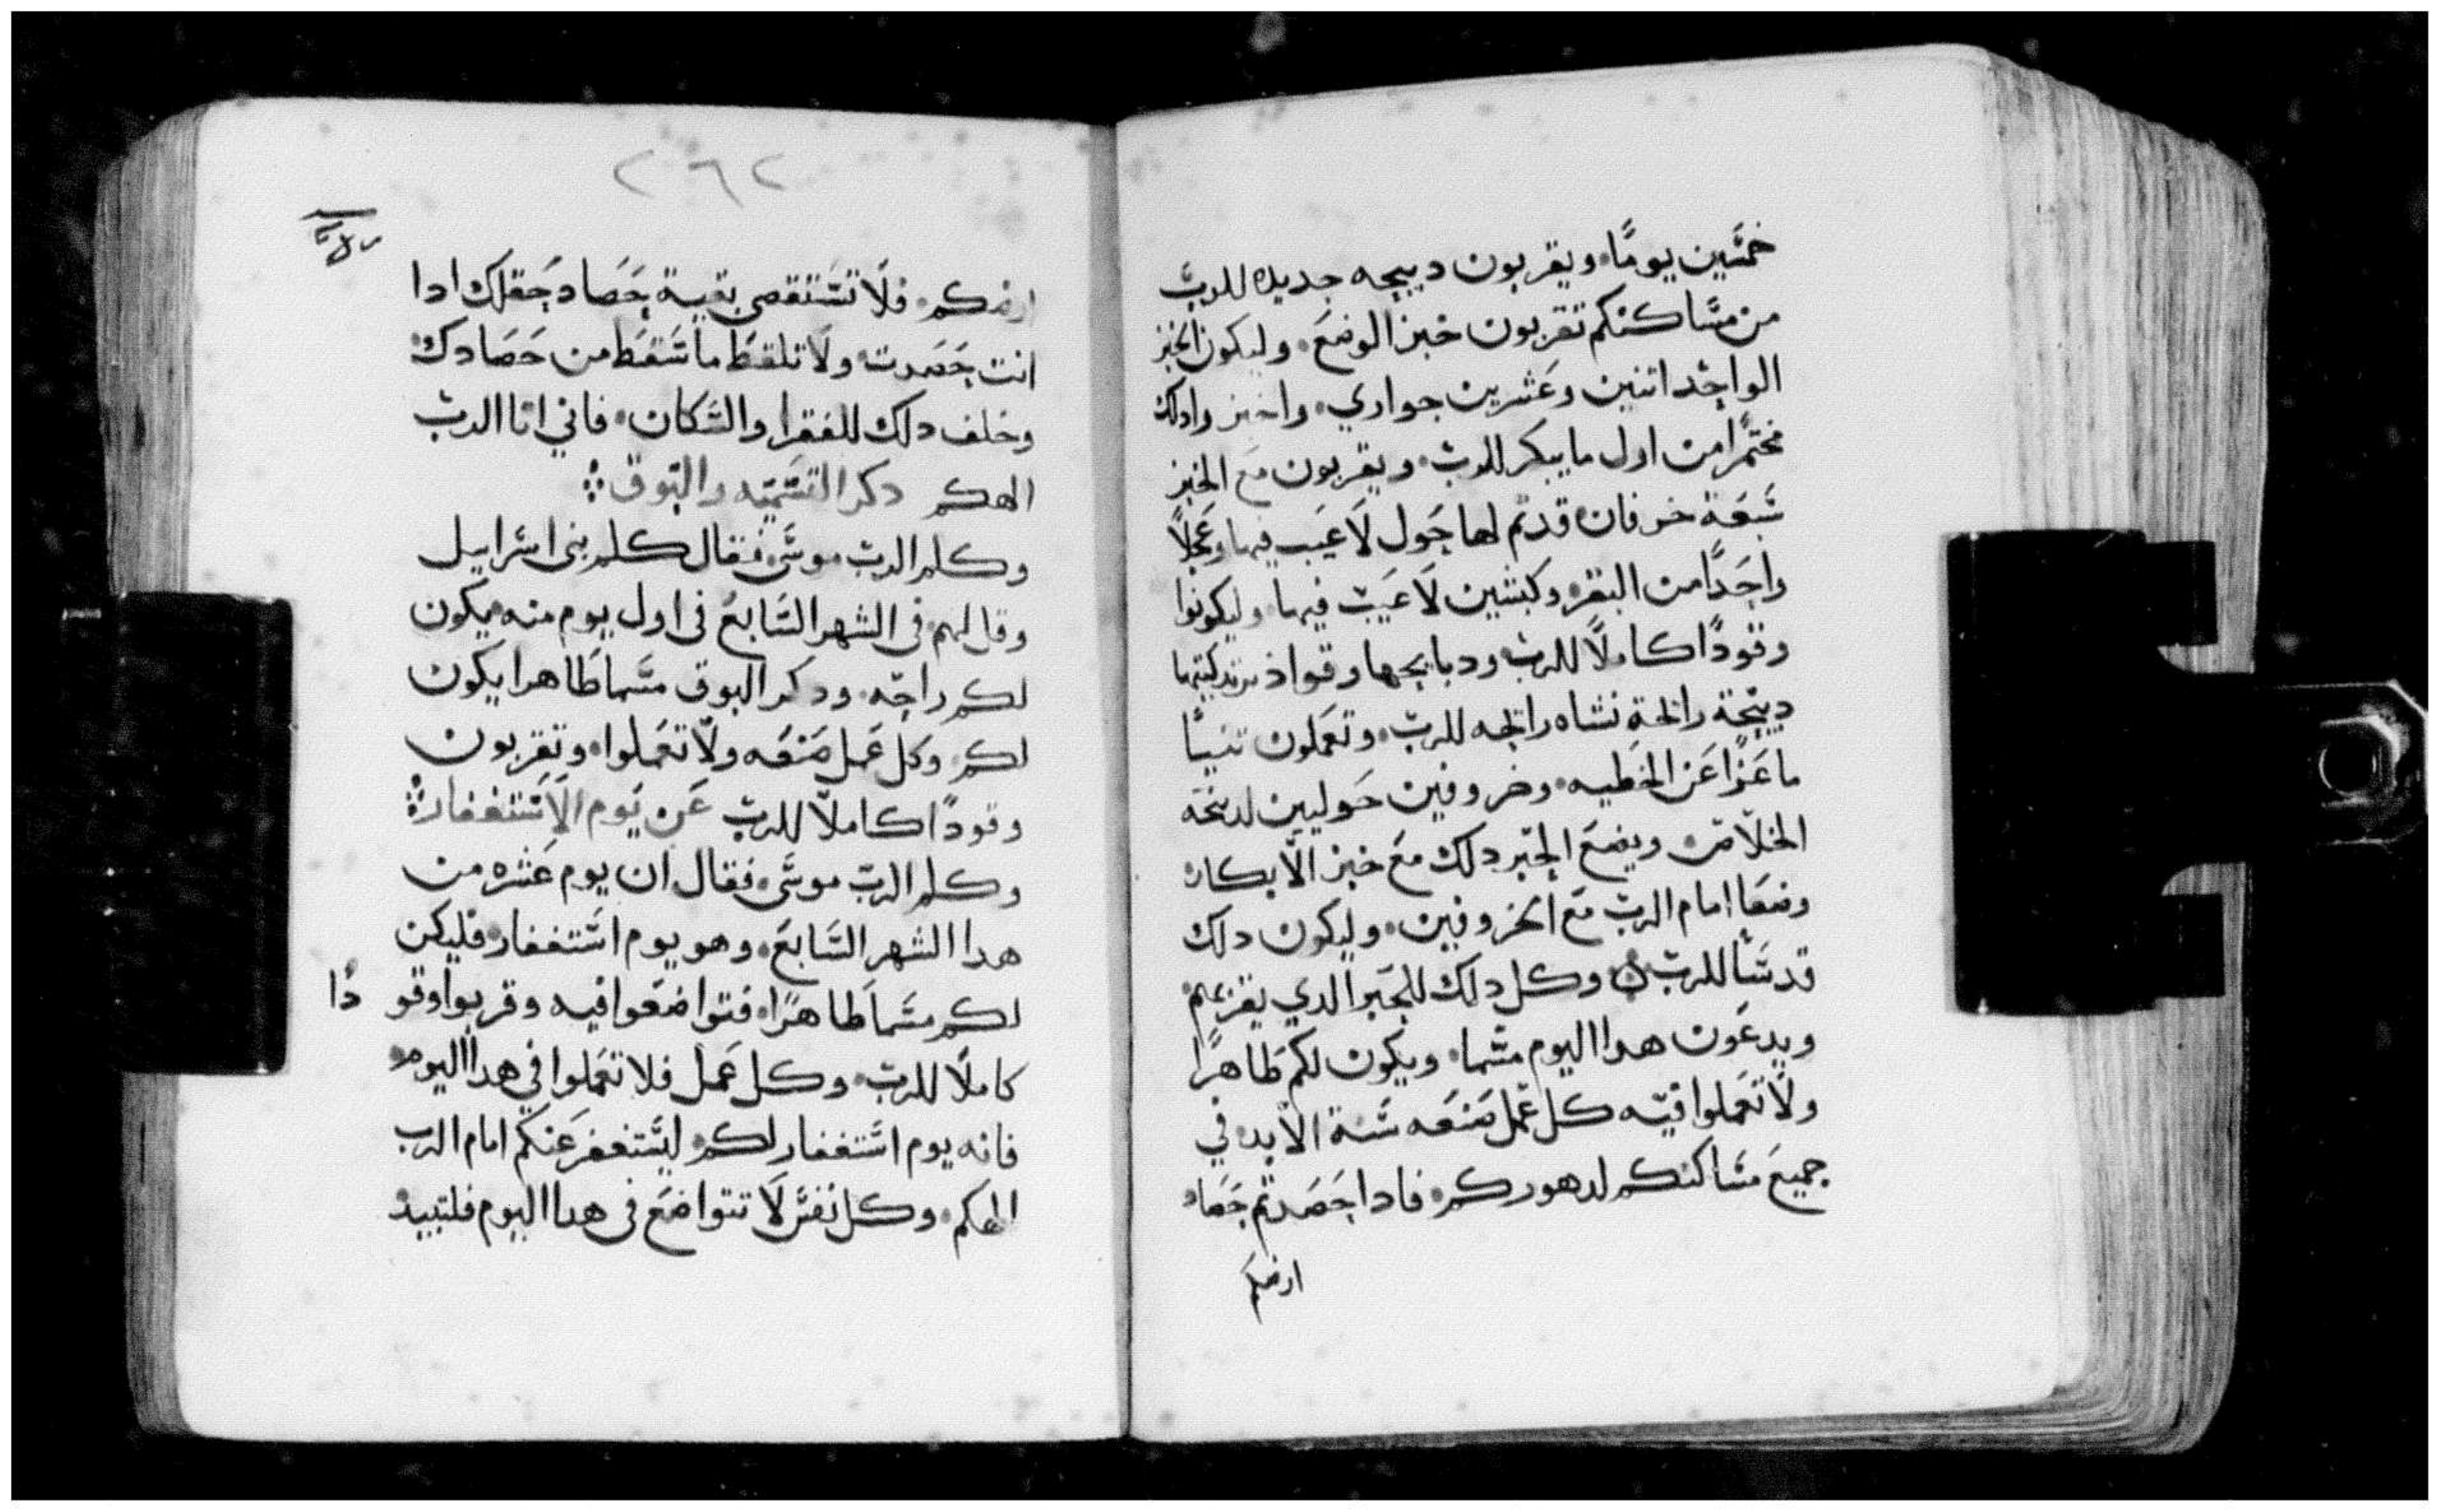 خمسين يومًا، ويقربون دبيحه جديده للرب
من مساكنكم تقربون خبز الوضع، وليكون الخبز
الواحد اتنين وعشرين حواري، واخبزوا دلك
مختمرًا من اول ما يبكر للرب، ويقربون مع الخبز
سبعة خرفان قد تم لها حول لا عيب فيها وعجلًا
واحدًا من البقر، وكبشين لا عيب فيها، وليكونوا
وقودًا كاملًا للرب ودبايحها وقواد
دبيحة رائحة نشاه رائحه للرب، وتعملون تنيًا
ماعزًا عن الخطيه، وخروفين حوليين لدبيحة
الخلاص، ويضع الحبر دلك مع خبز الابكار،
وضعًا امام الرب مع الخروفين، وليكون دلك
قدسًا للرب، وكل دلك للحبر الدي يقربهم
ويدعون هدا اليوم مسما، ويكون لكم طاهرًا
ولا تعملوا فيه كل عمل صنعه سنة الابد، في
جميع مساكنكم لدهوركم، فادا حصدتم حصاد
ارضكم
٢٦٢
ارضكم، فلا تستقصي بقية حصاد حقلك ادا
انت حصدت، ولا تلقط ما سقط من حصادك،
وخلف دلك للفقرا والسكان، فاني انا الرب
الهكم دكر التسميه والبوق
وكلم الرب موسى، فقال كلم بني اسراييل
وقال لهم، في الشهر السابع في اول يوم منه يكون
لكم راحه، ودكر البوق مسما طاهرا يكون
لكم، وكل عمل صنعه ولا تعملوا، وتقربون
وقودًا كاملا للرب عن يوم الاستغفار
وكلم الرب موسى، فقال ان يوم عشره من
هدا الشهر السابع، وهو يوم استغفار، فليكن
لكم مسما طاهرًا، فتواضعوا فيه وقربوا وقودًا
كاملًا للرب، وكل عمل فلا تعملوا في هدا اليوم
فانه يوم استغفار لكم، ليستغفر عنكم امام الرب
الهكم، وكل نفس لا تتواضع في هدا اليوم فلتبيد